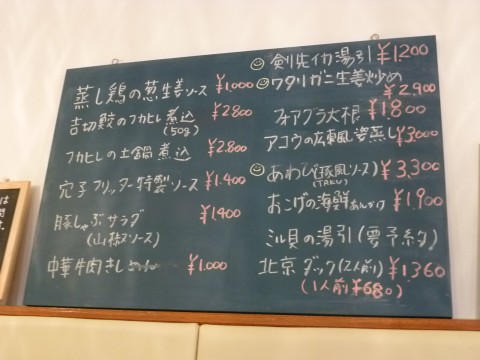 蒸し鶏の葱生姜ソース ¥1,000
吉切鮫のフカヒレ煮込 ¥2800
(50g)
フカヒレの土鍋煮込 ¥2.800
穴子フリッター特製ソース ¥1.400
豚しゃぶサラダ ¥1,400
(山椒ソース)
中華牛肉 ¥1.000
剣先イカ湯引 ¥1200
ワタリガニ生姜炒め
¥2900
フォアグラ大根 ¥1.800
アコウの広東風姿蒸し ¥3,000
あわび(豚風ソース) ¥3,300
(TAKU)
おこげの海鮮あんかけ ¥1,900
ミル貝の湯引(要予約)
北京ダック(2人前) ¥1360
(1人前¥680)